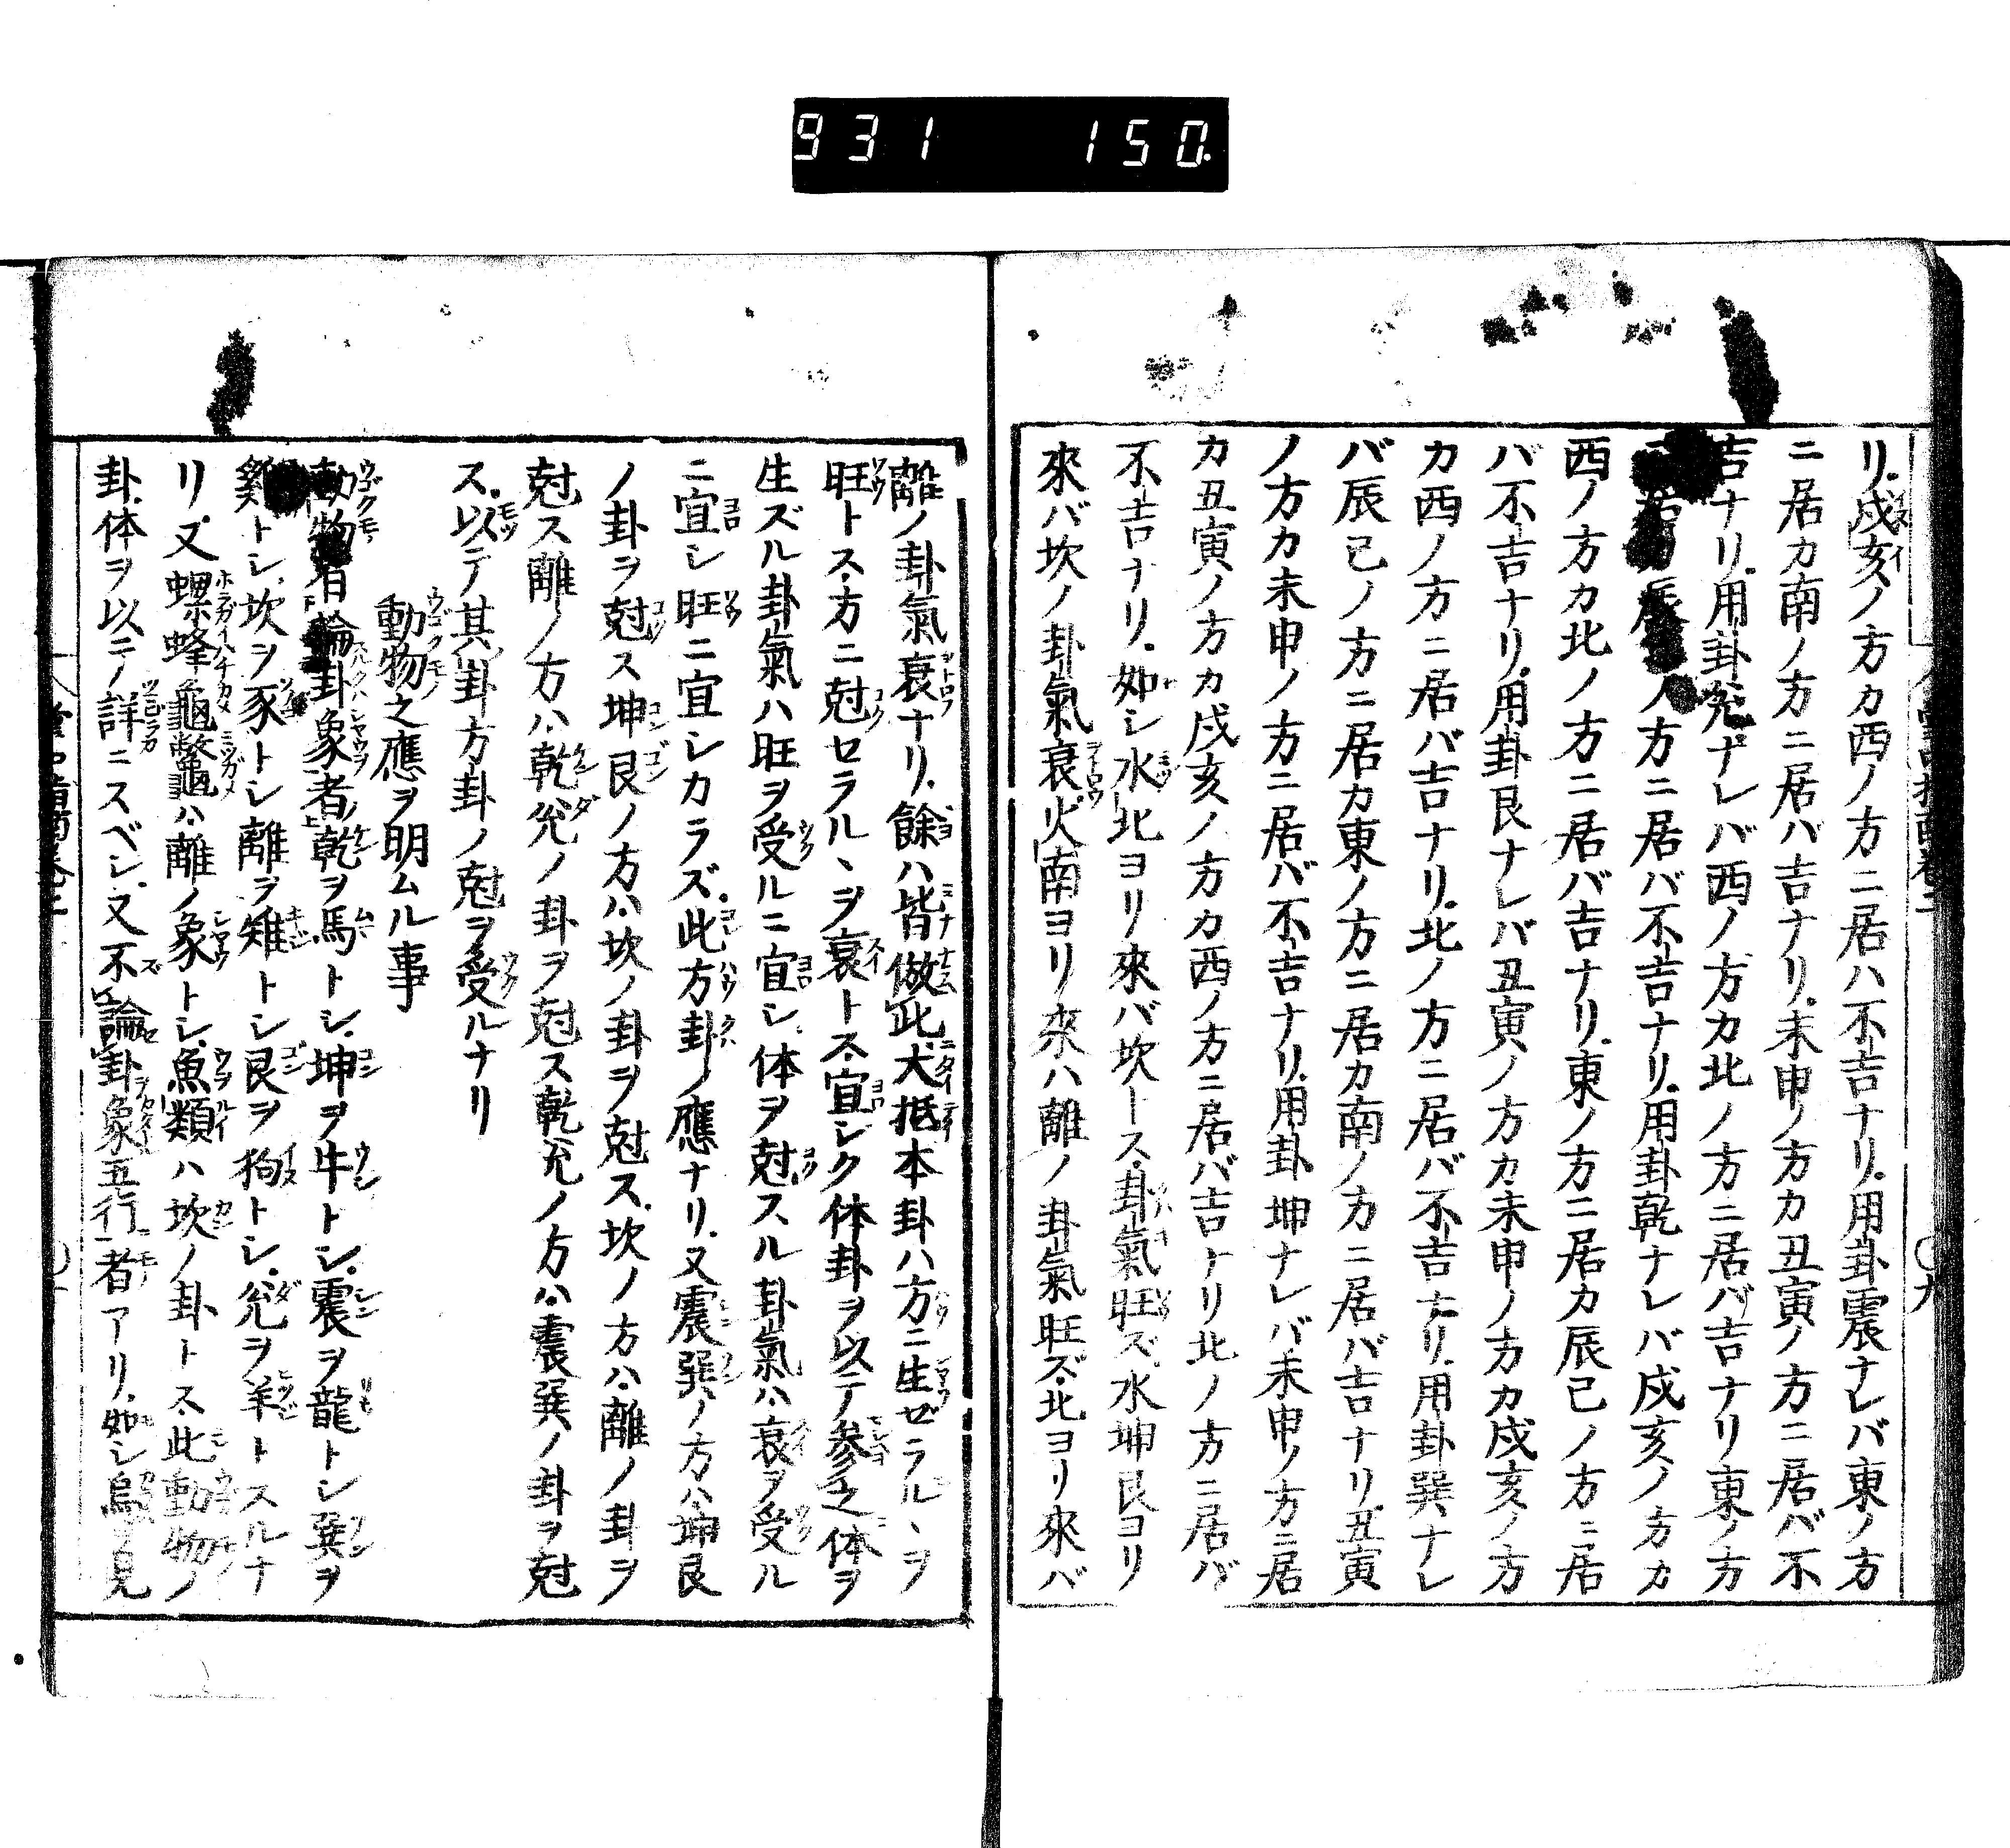 931 150
リ.戌亥ノ方カ西ノ方ニ居ハ不吉ナリ.用卦震ナレバ東ノ方
ニ居カ南ノ方ニ居ハ吉ナリ.未申ノ方カ丑寅ノ方ニ居バ不
吉ナリ.用卦兊ナレバ西ノ方カ北ノ方ニ居バ吉ナリ東ノ方
ノ方ニ居バ不吉ナリ.用卦乾ナレバ戌亥ノ方カ
西ノ方カ北ノ方ニ居バ吉ナリ.東ノ方ニ居カ辰巳ノ方ニ居
バ不吉ナリ.用卦艮ナレバ丑寅ノ方カ未申ノ方カ戌亥ノ方
カ西ノ方ニ居バ吉ナリ.北ノ方ニ居バ不吉ナリ.用卦巽ナレ
バ辰巳ノ方ニ居カ東ノ方ニ居カ南ノ方ニ居バ吉ナリ.丑寅
ノ方カ未申ノ方ニ居バ不吉ナリ.用卦坤ナレバ未申ノ方ニ居
カ丑寅ノ方カ戌亥ノ方カ西ノ方ニ居バ吉ナリ北ノ方ニ居バ
不吉ナリ.如シ水北ヨリ來バ坎トス.卦氣旺ズ水坤艮ヨリ
來バ坎ノ卦氣衰火南ヨリ來ハ離ノ卦氣旺ズ.北ヨリ來バ
離ノ卦氣衰ナリ.餘ハ皆倣此大抵本卦ハ方ニ生ゼラルヽヲ
旺トス.方ニ尅セラルヽヲ衰トス.宜シク体卦ヲ以テ参之体ヲ
生ズル卦氣ハ旺ヲ受ルニ宜シ.体ヲ尅スル卦氣ハ衰ヲ受ル
ニ宜シ旺ニ宜シカラズ.此方卦ノ應ナリ.又震巽ノ方ハ坤艮
ノ卦ヲ尅ス坤艮ノ方ハ坎ノ卦ヲ尅ス.坎ノ方ハ離ノ卦ヲ
尅ス離ノ方ハ乾兊ノ卦ヲ尅ス乾兊ノ方ハ震巽ノ卦ヲ尅
ス.以テ其卦方卦ノ尅ヲ受ルナリ
動物之應ヲ明ムル事
動物者論卦象者乾ヲ馬トシ.坤ヲ牛トシ.震ヲ龍トシ巽ヲ
鷄トシ.坎ヲ豕トシ離ヲ雉トシ艮ヲ狗トシ.兊ヲ羊トスルナ
リ.又螺蜂龜鼈ハ離ノ象トシ.魚類ハ坎ノ卦トス.此動物ノ
卦.体ヲ以テノ詳ニスベシ.又不論卦象五行者アリ.如シ烏ヲ見